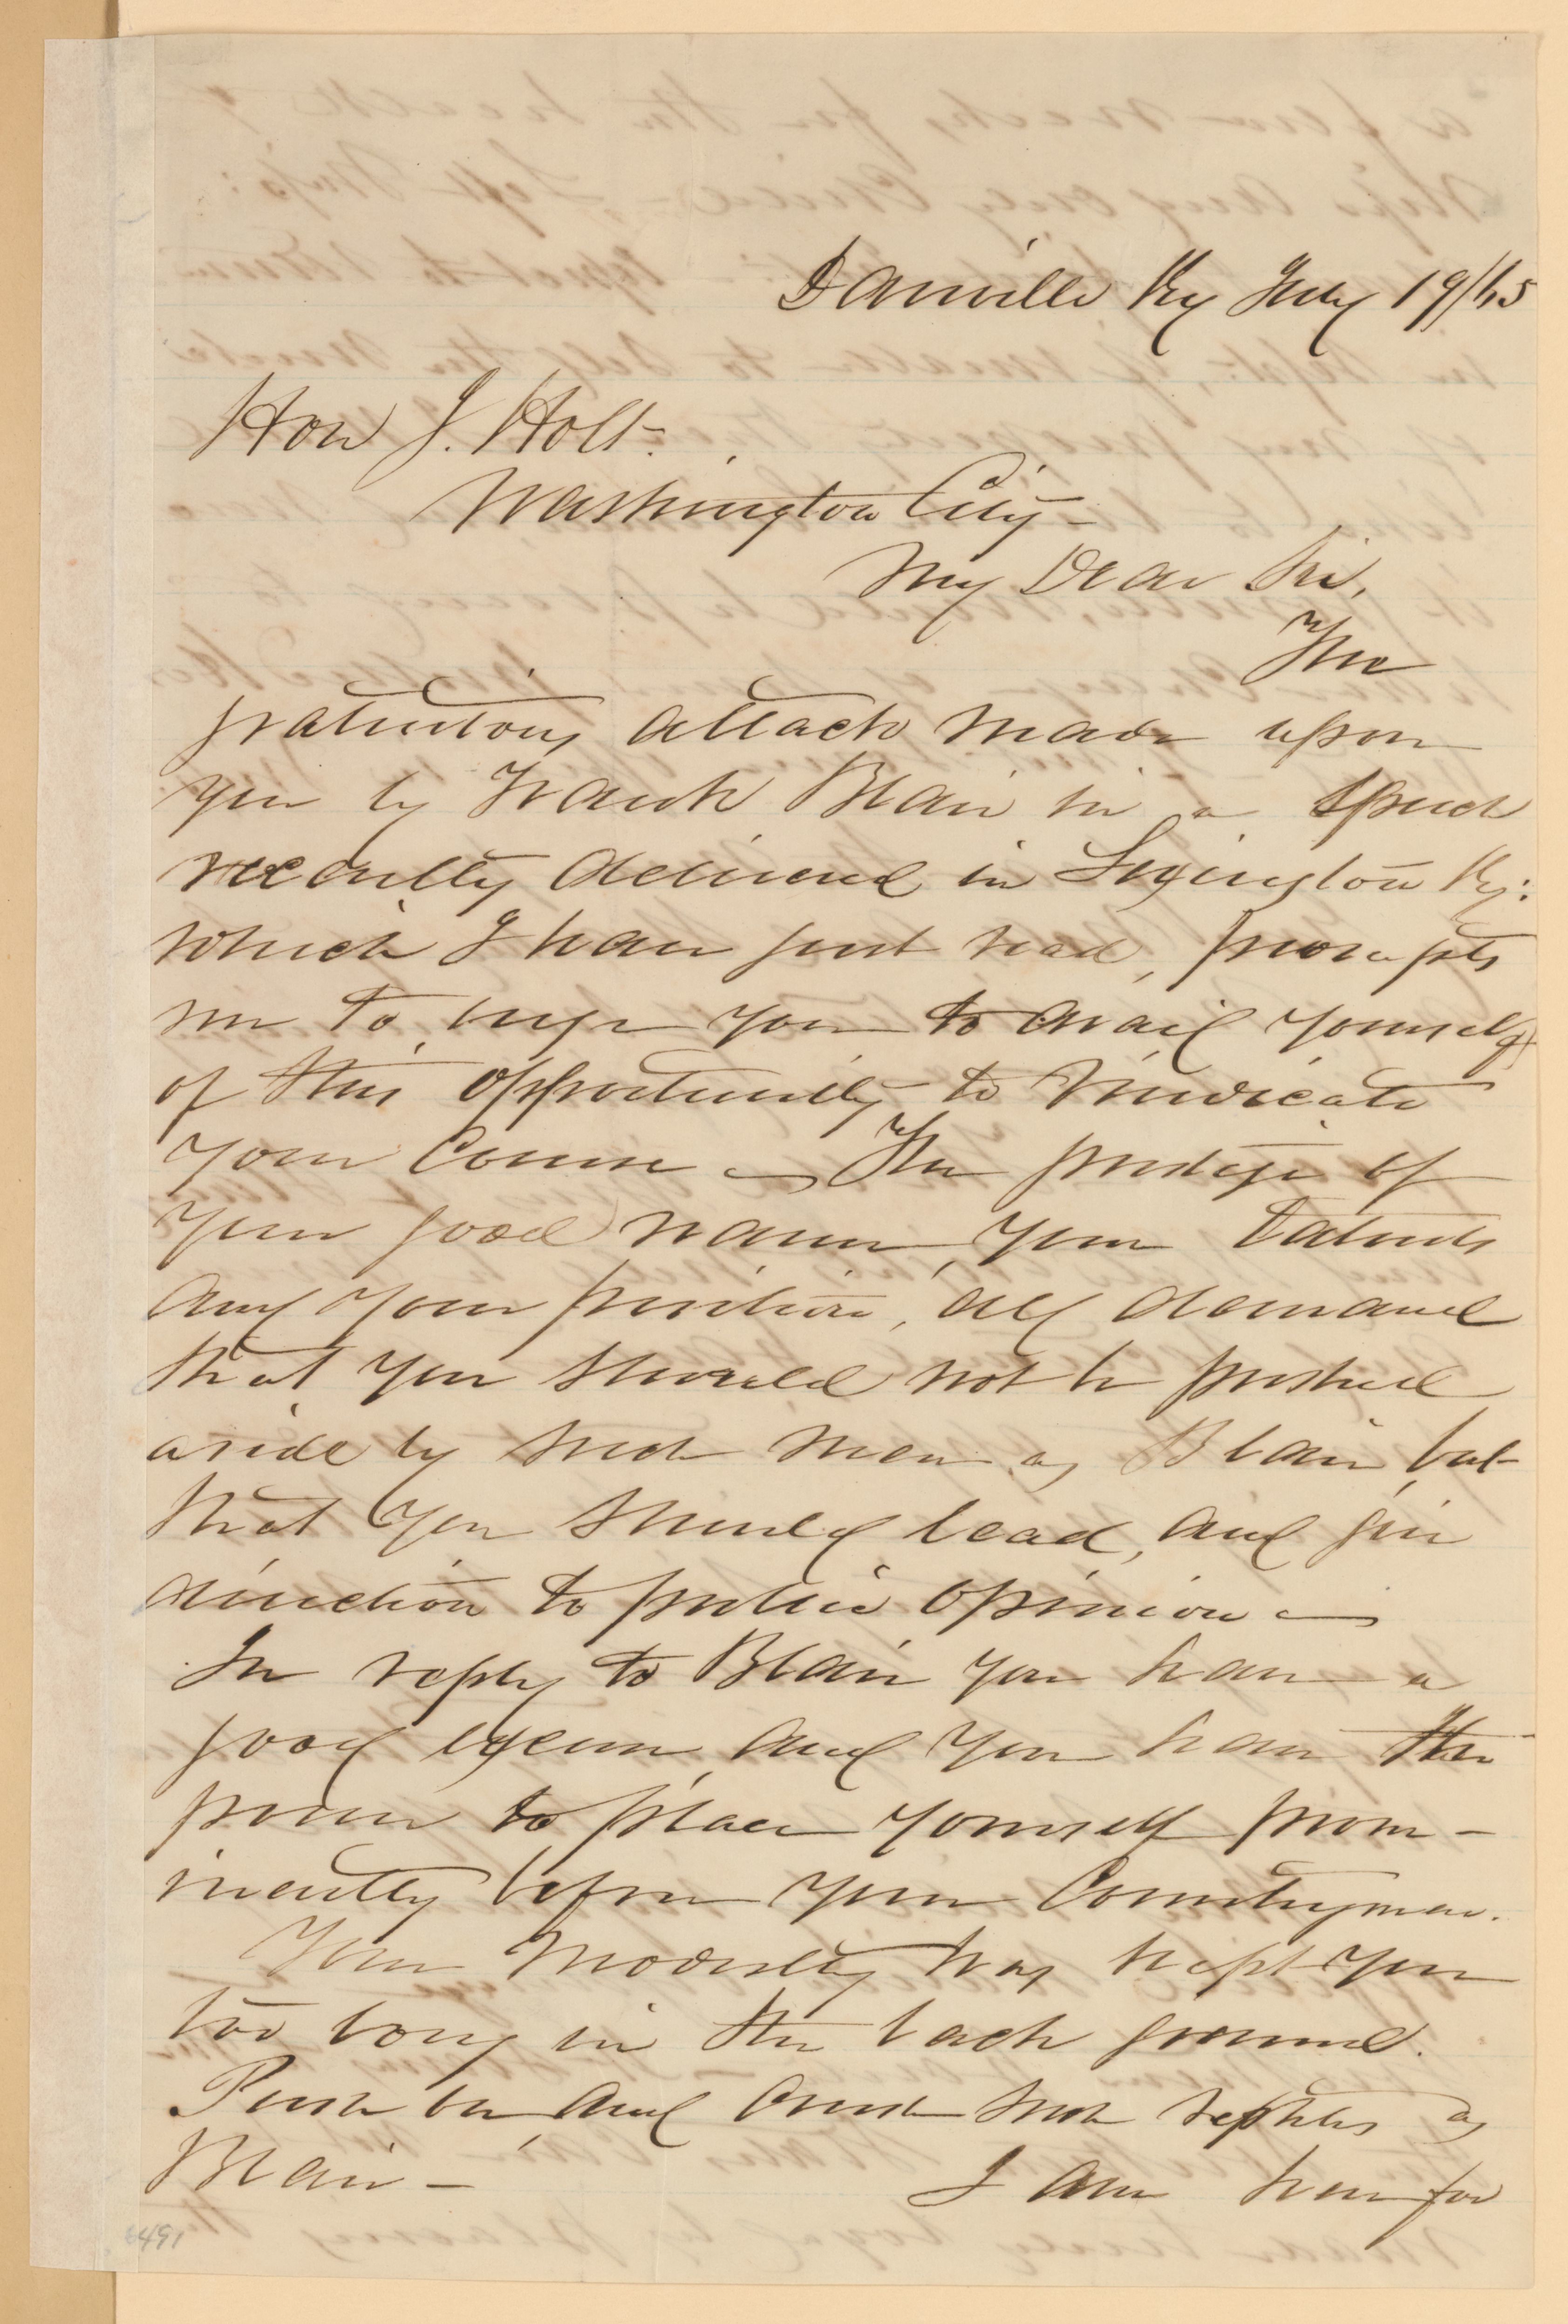 Danville Ky July 19/65
Hon J. Holt.
Washington City-
My Dear Sir,
The
gratuitous attack made upon
you by Frank Blair in a speech
recently delivered in Lexington Ky:
which I have just read, prompts
me to urge you to avail yourself
of this opportunity to vindicate
your course — The prestige of
your good name, your talents
and your position, all demand
that you should not be pushed
aside by such men as Blair, but
that you should lead, and give
direction to public opinion —
In reply to Blair you have a
good excuse, and you have the
power to place yourself prom-
inently before your Countrymen.
Your modesty has kept you
too long in the back ground.
Push on, and crush such reptiles as
Blair —
I am here for
6491